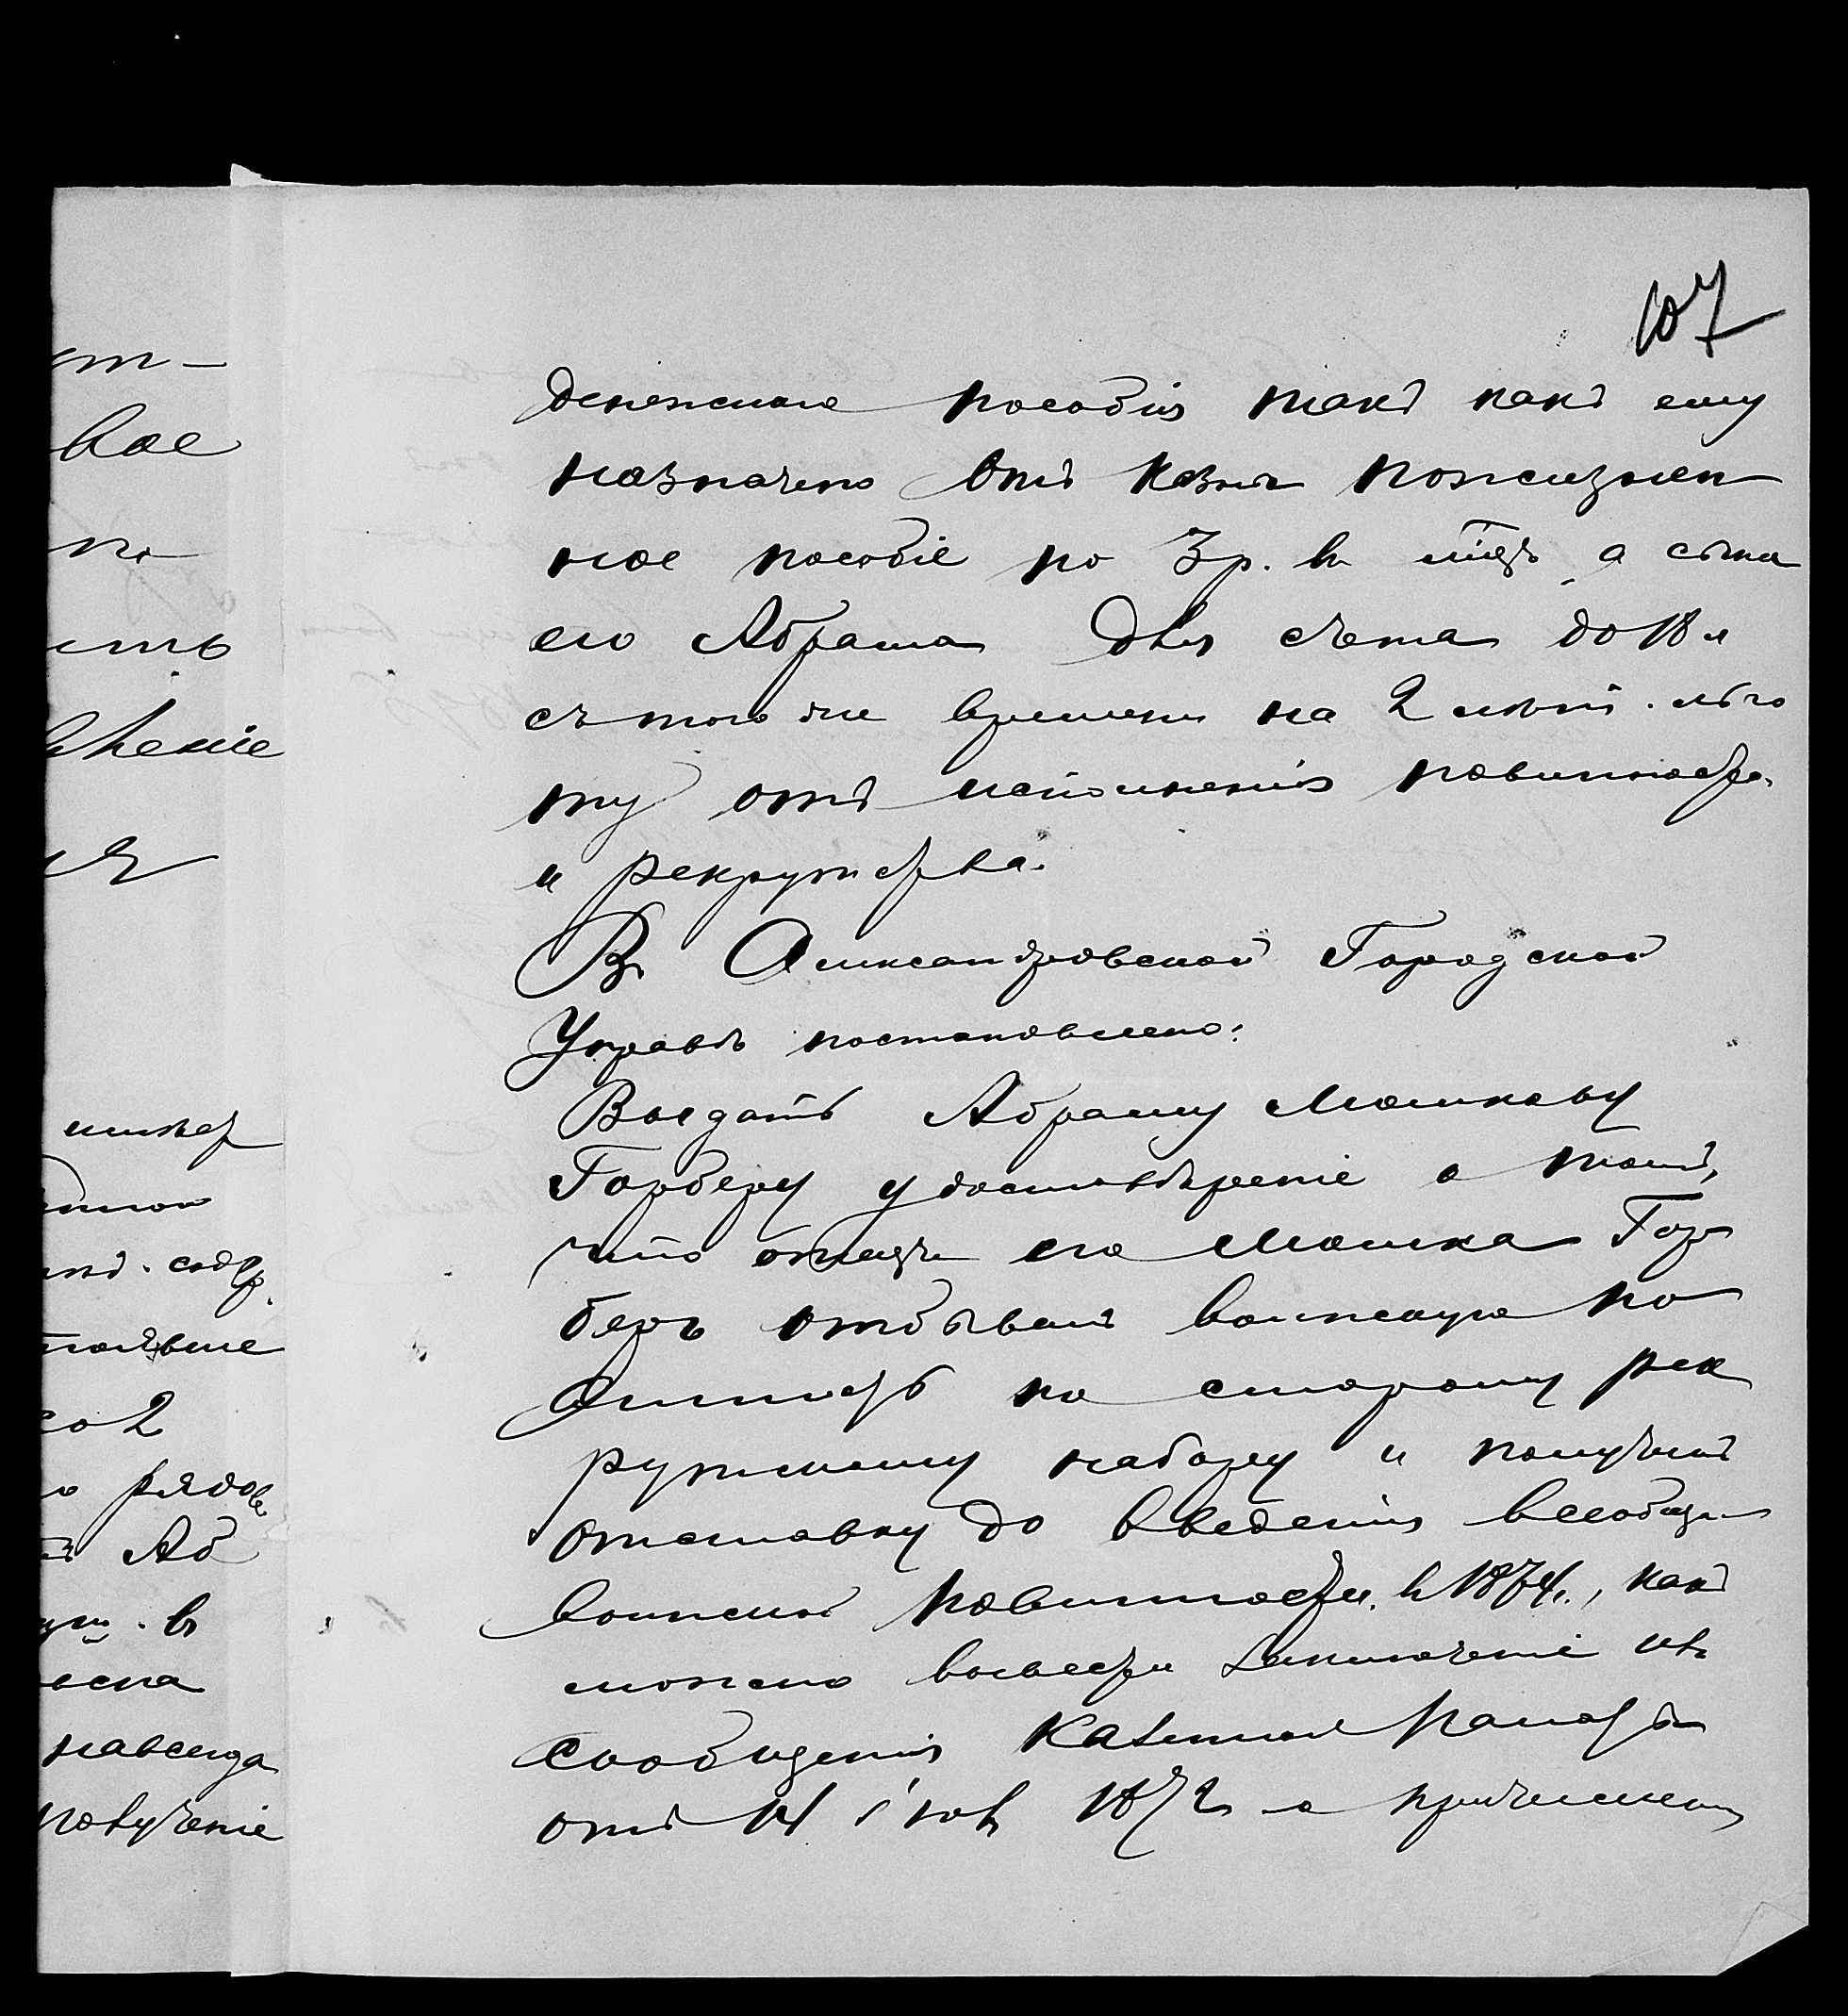 107
денежнаго пособія такъ какъ ему
назначено отъ казны пожизнен
ное пособіе по 3 р. въ м̃цъ, а сына
его Абрама для счета до 18 л
съ того же времени на 2 лѣт. льго
ту отъ исполненія повинности
и рекрутства.
Въ Александровской Городской
Управѣ постановлено:
Выдать Абраму Мошкову
Горберу удостовѣреніе о томъ,
что отецъ его Мошка Гор
беръ отбывалъ воинскую по
винность по старому рек
рутскому набору и получилъ
отставку до введенія всеобщей
воинской повинности в 1874 г., какъ
можно вывести заключеніе изъ
сообщенія Казенной Палаты
отъ 14 1872 о причисленіи
вое
по
вленіе
содер
со 2
рядов
Аб
в
навсегда
получение